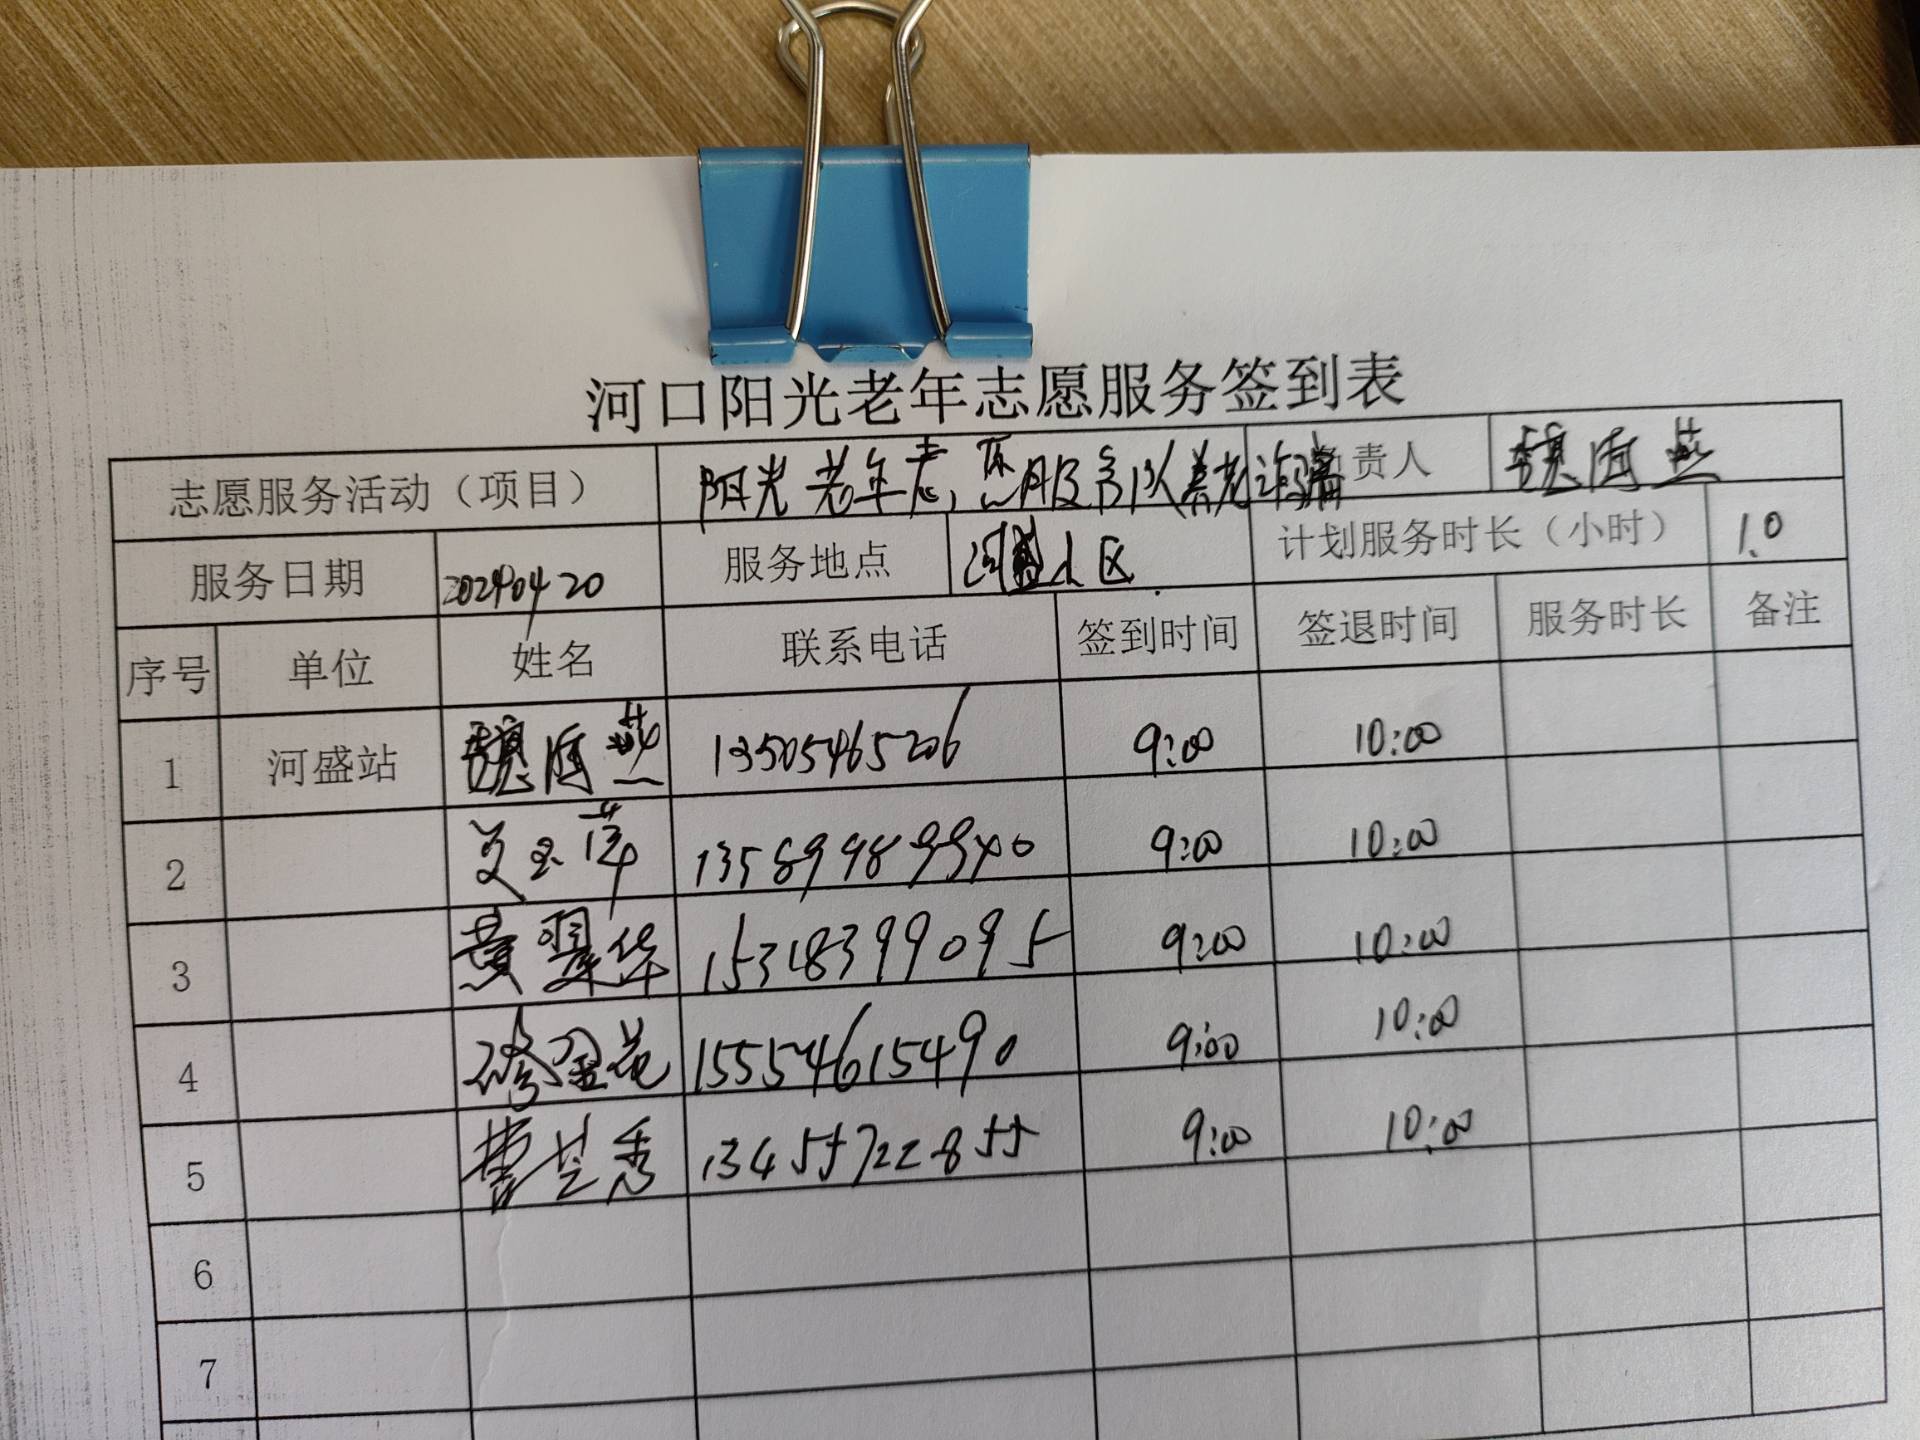 河口阳光老年志愿服务签到表
志愿服务活动（项目） 阳光老年志愿服务队养老诈骗 负责人 魏国燕
服务日期 20240420 服务地点 河盛小区 计划服务时长（小时） 1.0
序号 单位 姓名 联系电话 签到时间 签退时间 服务时长 备注
1 河盛站 魏国燕 13505465206 9:00 10:00
2 13589989940 9:00 10:00
3 黄翠华 15318399095 9:00 10:00
4 15554615490 9:00 10:00
5 曹兰秀 13455722855 9:00 10:00
6
7